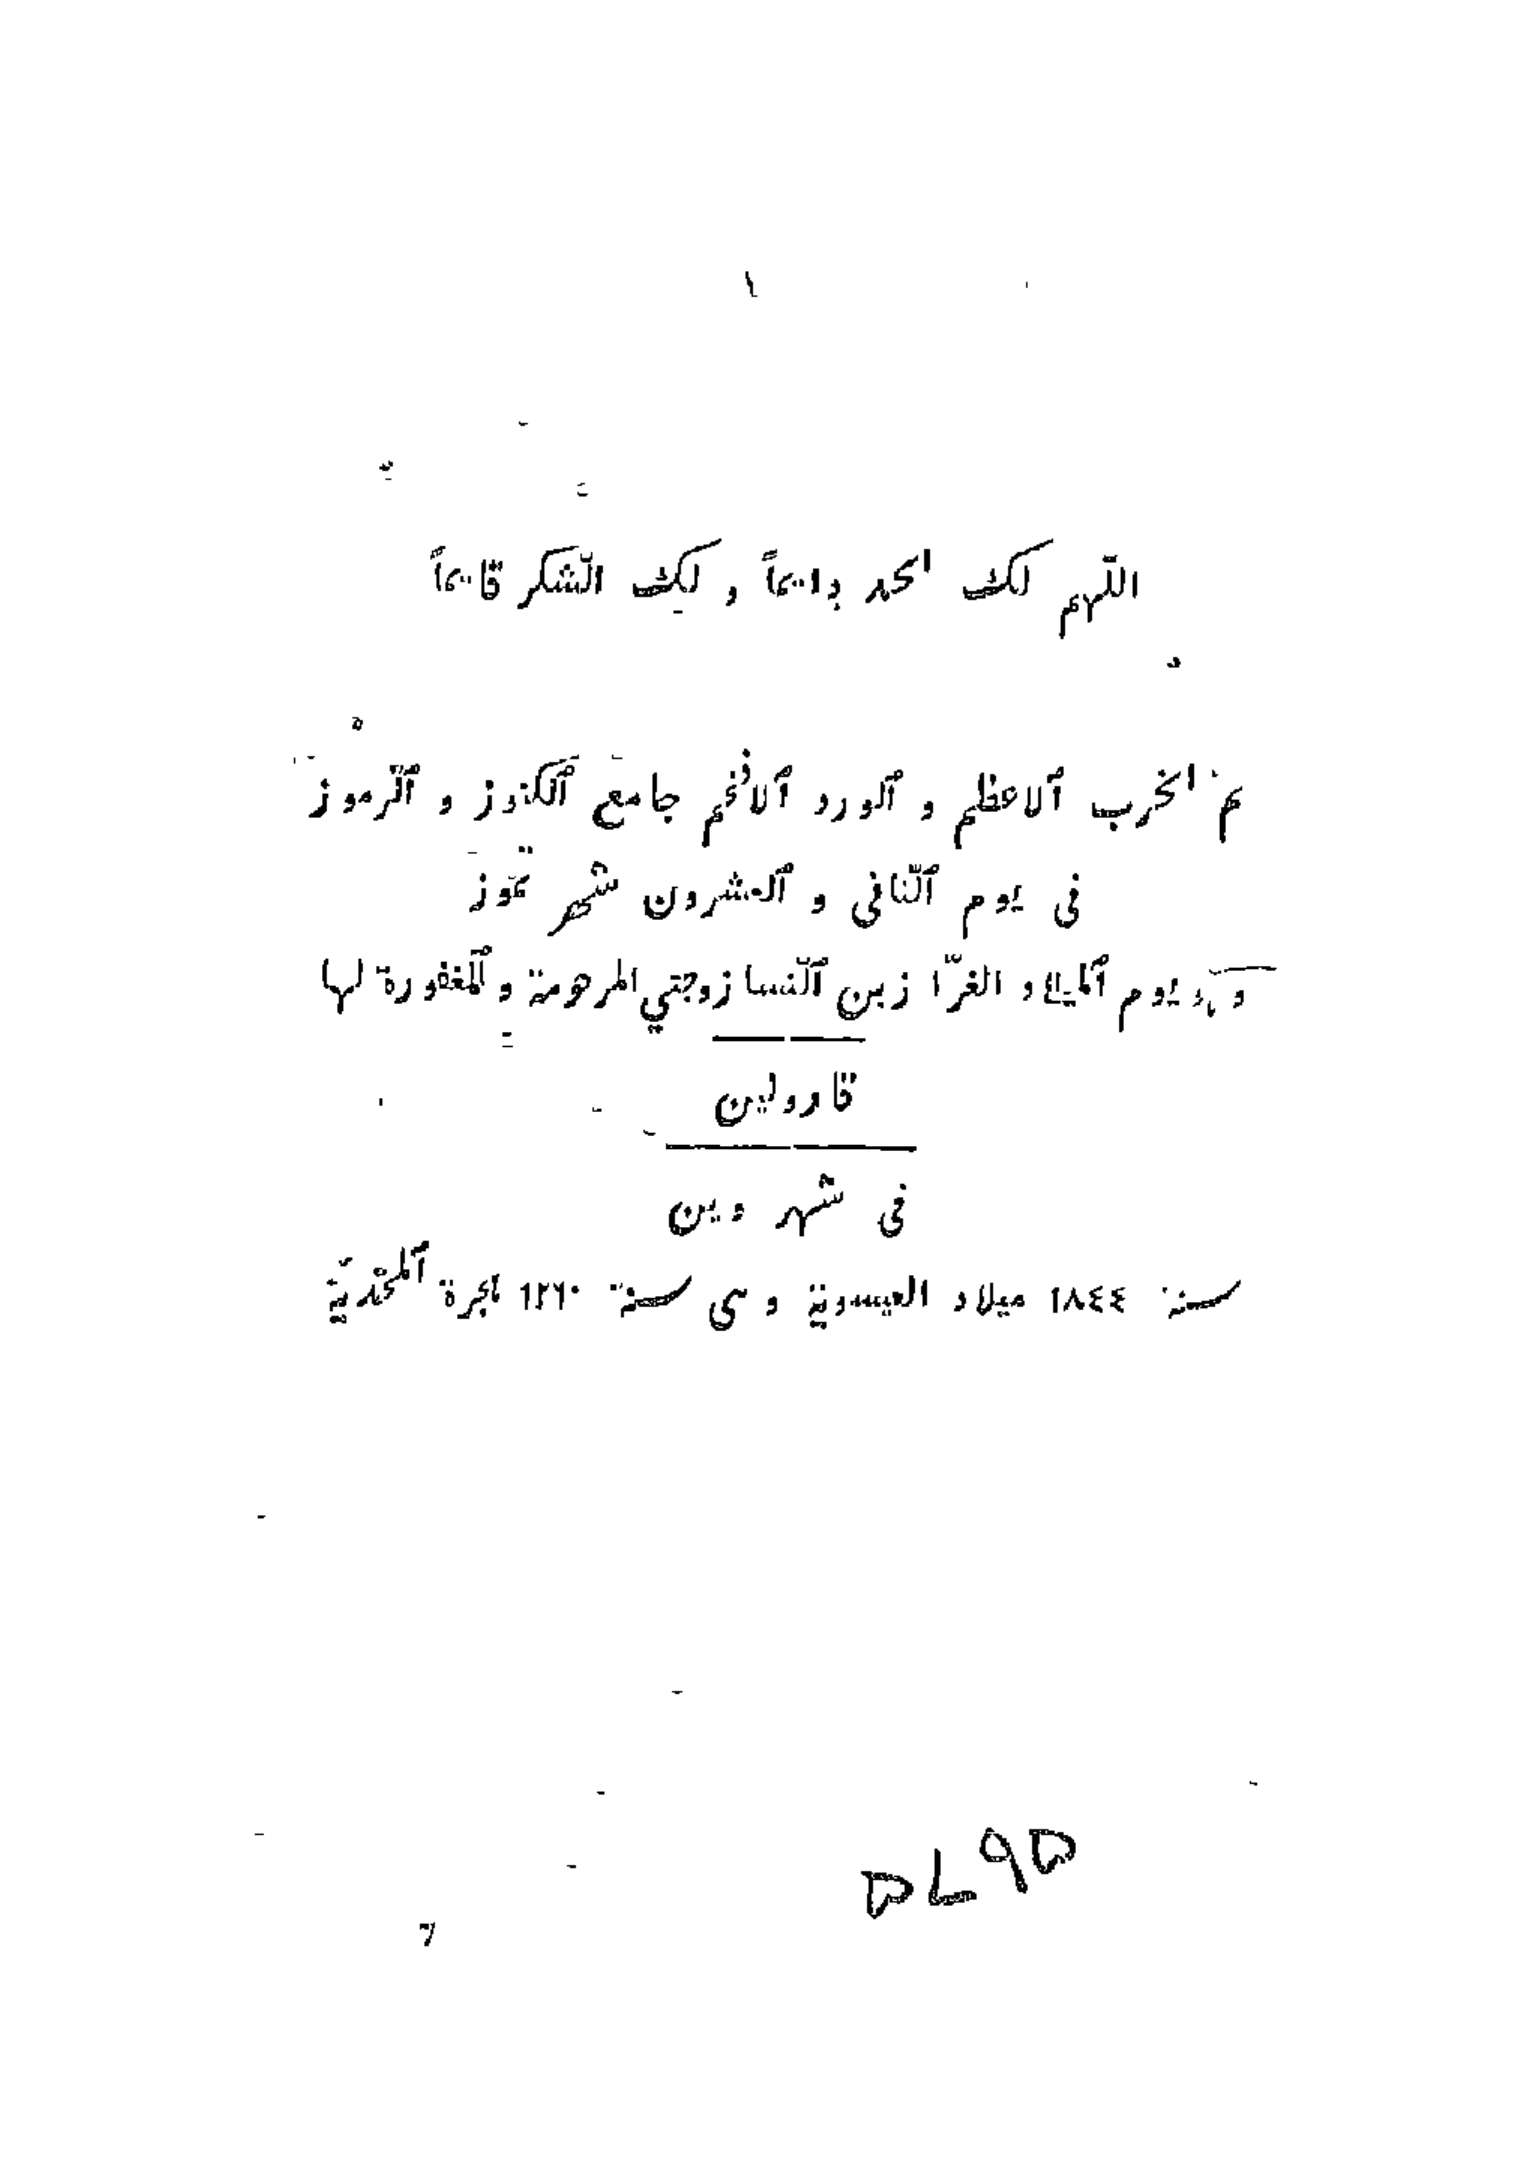 ١
اللّهم لك الحمد دائماً و لك الشكر قائماً
تم الحزب ٱلاعظم و ٱلورد ٱلافخم جامع ٱلكنوز و ٱلرموز
فى يوم ٱلثانى و ٱلعشرون شهر تموز
و هو يوم ٱلميلاد الغرّا زين ٱلنسا زوجتي المرحومة و ٱلمغفورة لها
قارولين
فى شهر وين
سنة ١٨٤٤ ميلاد العيسوية و سنة ١٢٦٠ هجرة ٱلمحمّديّة
7